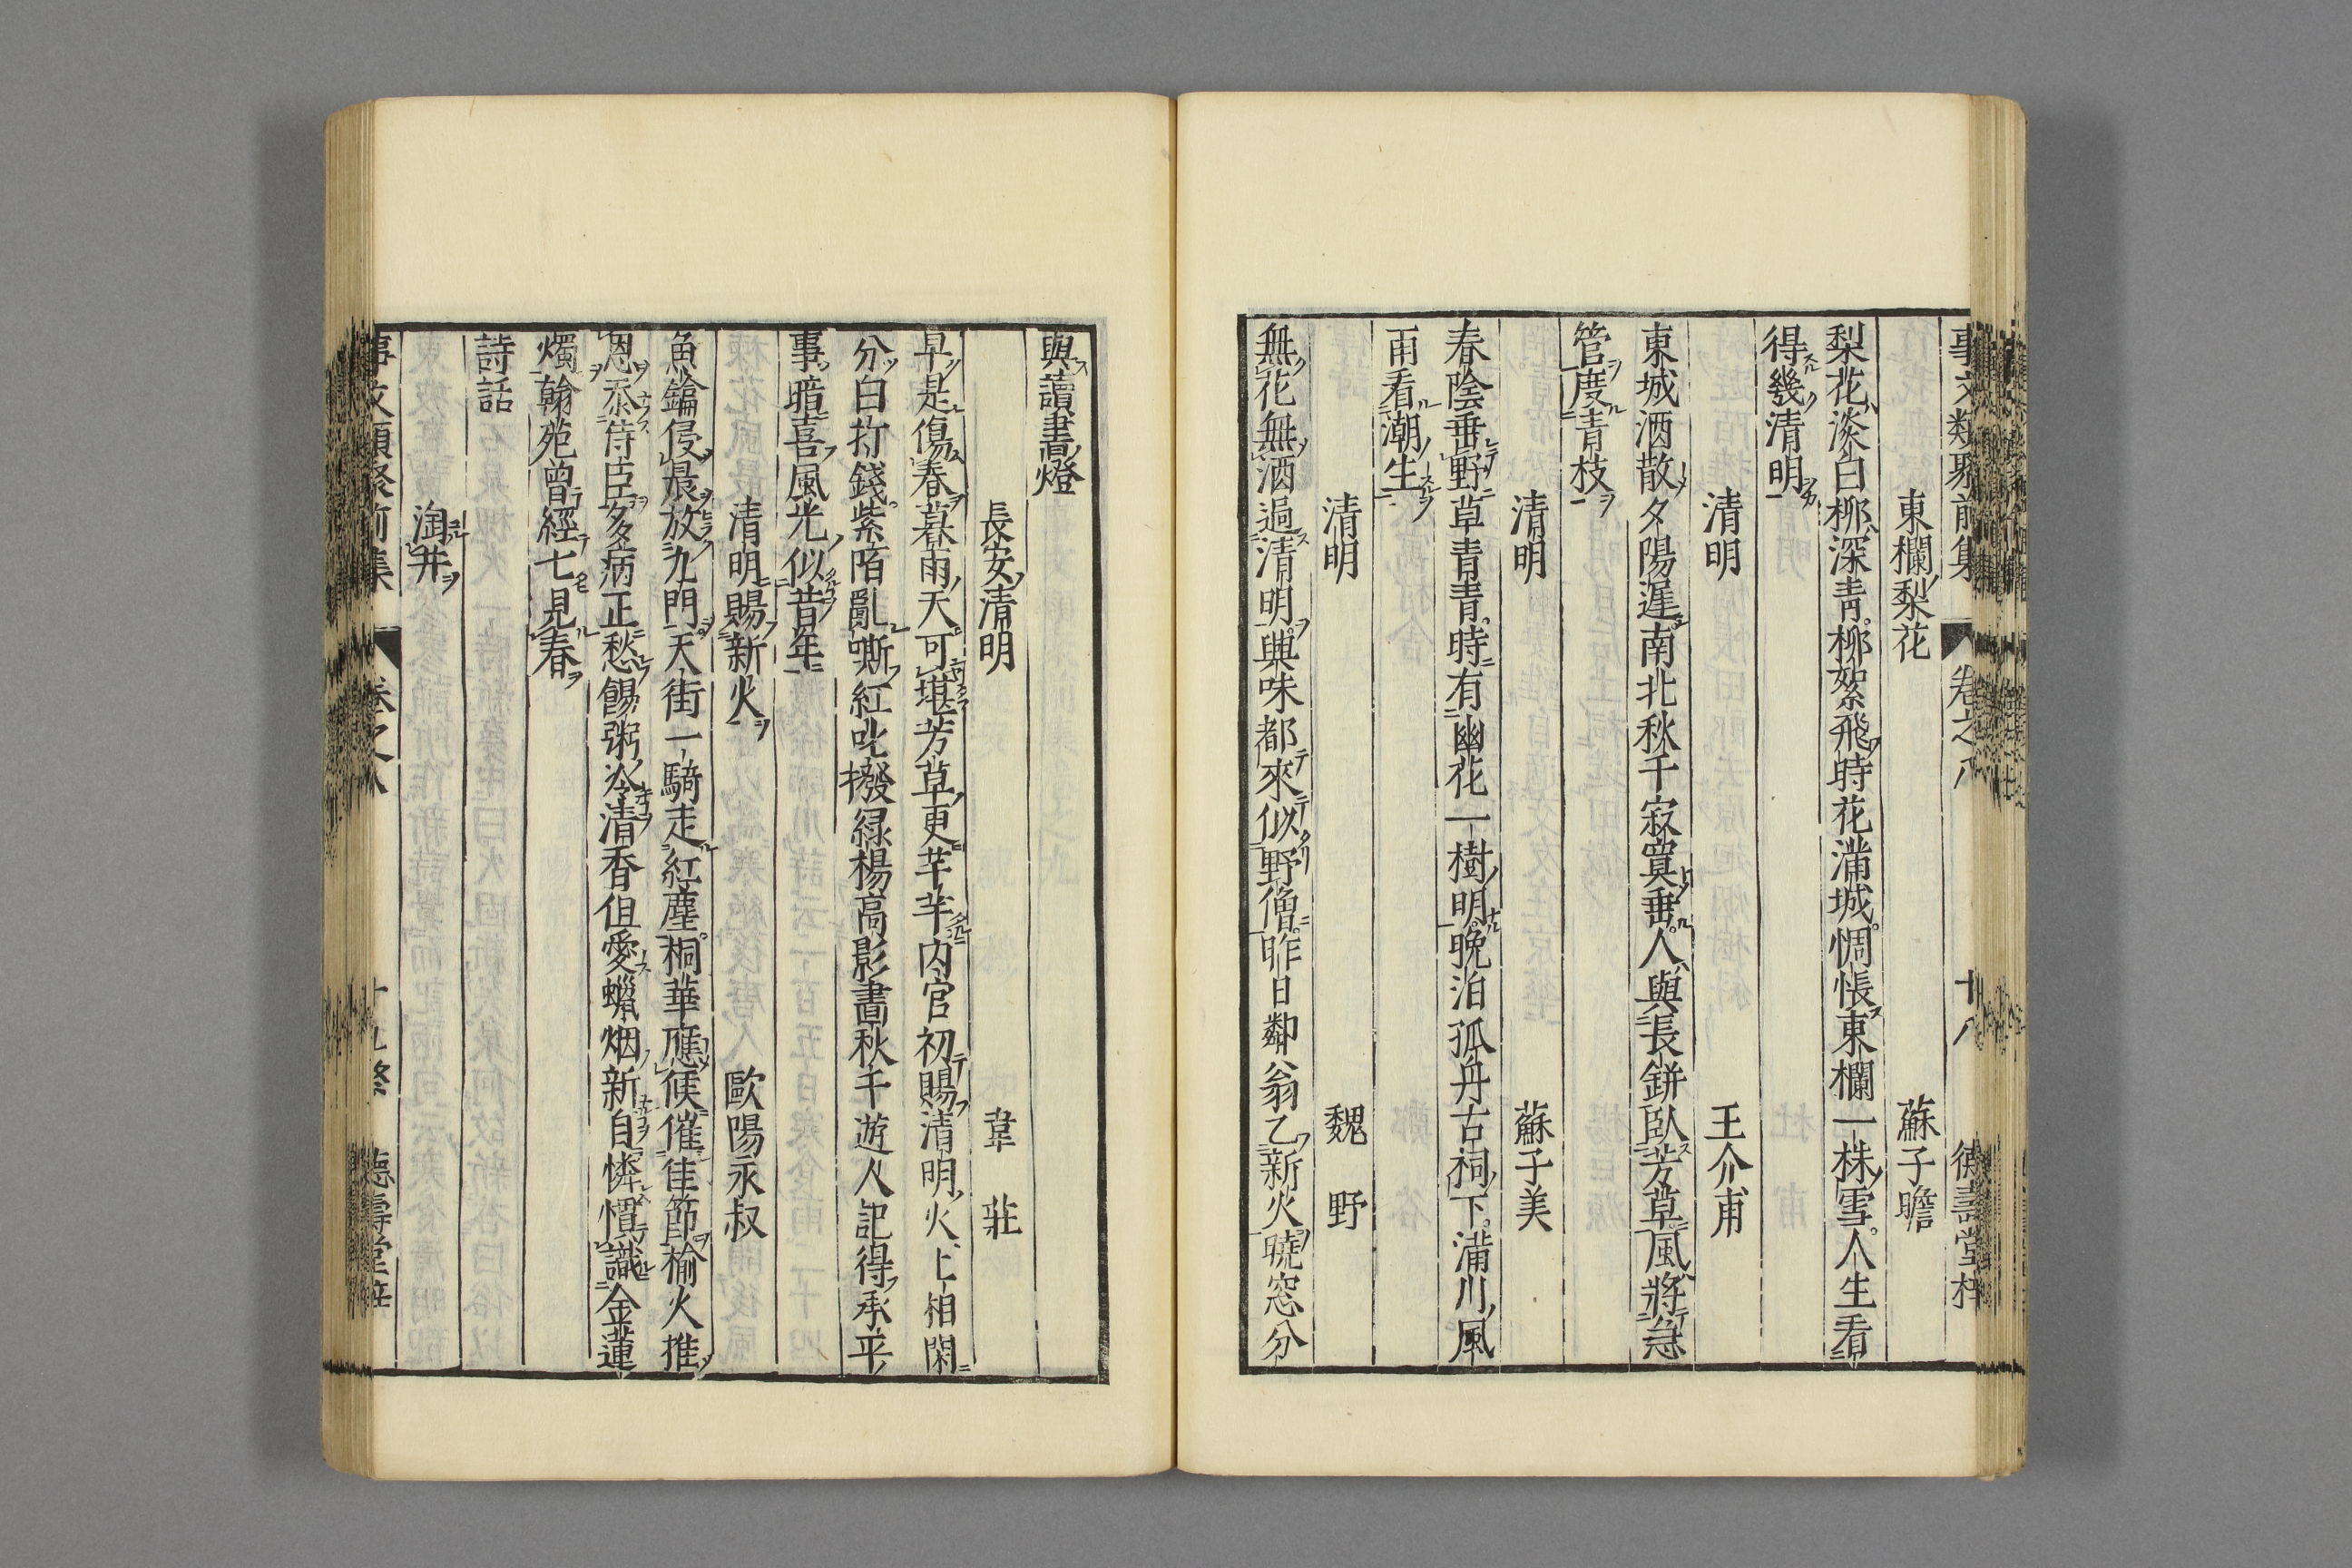 事文類聚前集 卷之八 十八 德壽堂梓
東欄梨花 蘇子瞻
梨花淡白柳深青柳絮飛時花滿城惆悵東欄一株雪人生看
得幾清明
清明 王介甫
東城酒散夕陽遲南北秋千寂寞垂人與長缾臥芳草風將急
管度青枝
清明 蘇子美
春陰垂野草青青時有幽花一樹明晚泊孤舟古祠下滿川風
雨看潮生
清明 魏野
無花無酒過清明興味都來似野僧昨日鄰翁乞新火曉窓分
與讀書燈
長安清明 韋莊
早是傷春暮雨天可堪芳草更芊芊內官初賜清明火上相閑
分白打錢紫陌亂嘶紅叱撥綠楊高影畫秋千遊人記得承平
事暗喜風光似昔年
清明賜新火 歐陽永叔
魚鑰侵晨放九門天街一騎走紅塵桐華應候催佳節榆火推
恩忝侍臣多病正愁餳粥冷清香但愛蠟烟新自憐慣識金蓮
燭翰苑曾經七見春
詩話
淘井
事文類聚前集 卷之八